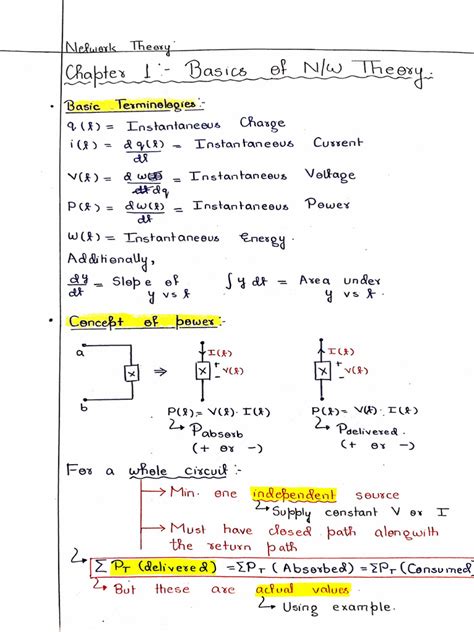 Network Theory
Chapter 1 :- Basics of N/W Theory.
• Basic Terminologies :-
q(t) = Instantaneous Charge
i(t) = dq(t)/dt = Instantaneous Current
V(t) = dw/dq = Instantaneous Voltage
P(t) = dw(t)/dt = Instantaneous Power
w(t) = Instantaneous Energy.
Additionally,
dy/dt = Slope of y vs t
∫y dt = Area under y vs t.
• Concept of power :-
a
b
X
⇒
I(t)
X
+
-
V(t)
P(t) = V(t)· I(t)
↳ Pabsorb
(+ or -)
I(t)
X
+
-
V(t)
P(t) = V(t)· I(t)
↳ Pdelivered
(+ or -)
For a whole circuit :-
→ Min. one independent source
↳ Supply constant V or I
→ Must have closed path alongwith
the return path
↳ Σ PT (delivered) = ΣPT (Absorbed) = ΣPT (Consumed)
↳ But these are actual values
↳ Using example.